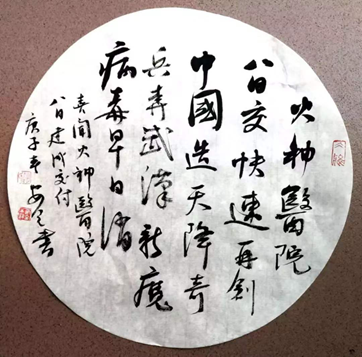 火神醫院
八日交快速再創
中國造天降奇
兵奔武漢新魔
病毒早日消
喜聞火神醫院
八日建成交付
庚子年書